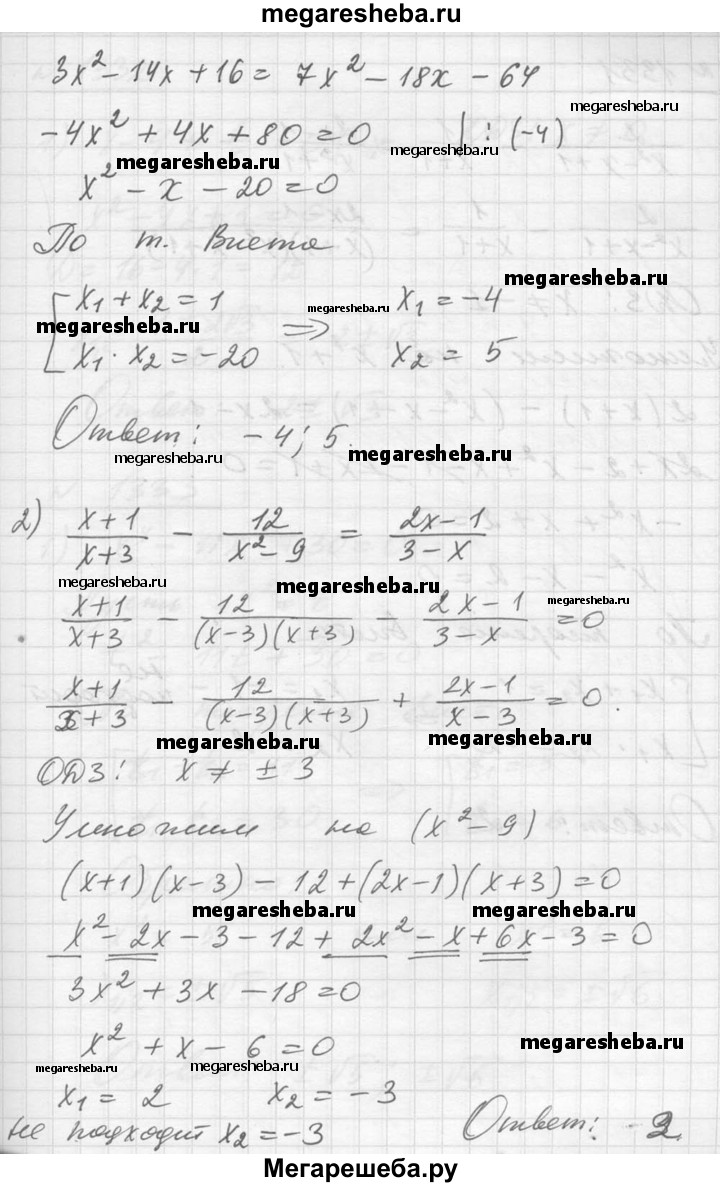 megaresheba.ru
3x² - 14x + 16 = 7x² - 18x - 64
megaresheba.ru
-4x² + 4x + 80 = 0 | : (-4)
megaresheba.ru megaresheba.ru
x² - x - 20 = 0
По т. Виета
megaresheba.ru
x₁ + x₂ = 1 megaresheba.ru x₁ = -4
megaresheba.ru ⇒
x₁ · x₂ = -20 x₂ = 5
Ответ: -4; 5.
megaresheba.ru megaresheba.ru
2) (x+1)/(x+3) - 12/(x²-9) = (2x-1)/(3-x)
megaresheba.ru megaresheba.ru
(x+1)/(x+3) - 12/((x-3)(x+3)) - (2x-1)/(3-x) = 0
megaresheba.ru
(x+1)/(x+3) - 12/((x-3)(x+3)) + (2x-1)/(x-3) = 0.
megaresheba.ru megaresheba.ru
ОДЗ: x ≠ ± 3
Умножим на (x² - 9)
(x+1)(x-3) - 12 + (2x-1)(x+3) = 0
megaresheba.ru megaresheba.ru
x² - 2x - 3 - 12 + 2x² - x + 6x - 3 = 0
3x² + 3x - 18 = 0
x² + x - 6 = 0 megaresheba.ru
megaresheba.ru megaresheba.ru
x₁ = 2 x₂ = -3
не подходит x₂ = -3 Ответ: 2.
megaresheba.ru
Мегарешеба.ру